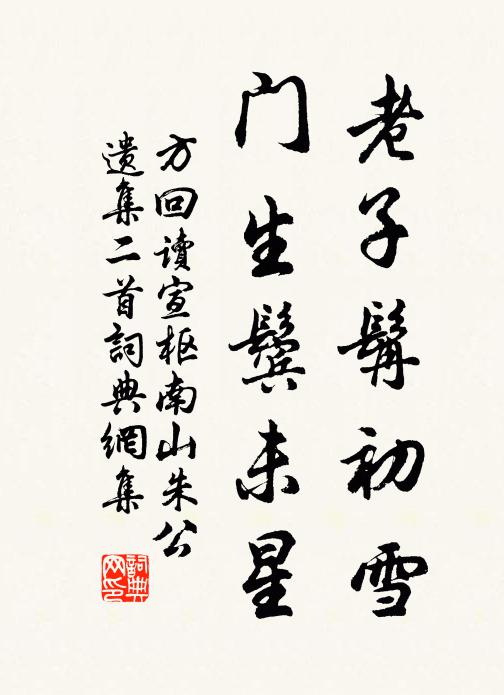 老子髯初雪
门生鬓未星
方回读宣枢南山朱公
遗集二首词典网集
詞典网印